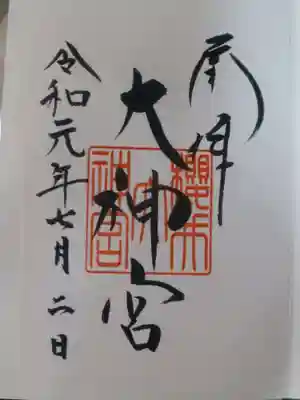 奉拝
大神宮
令和元年七月二日